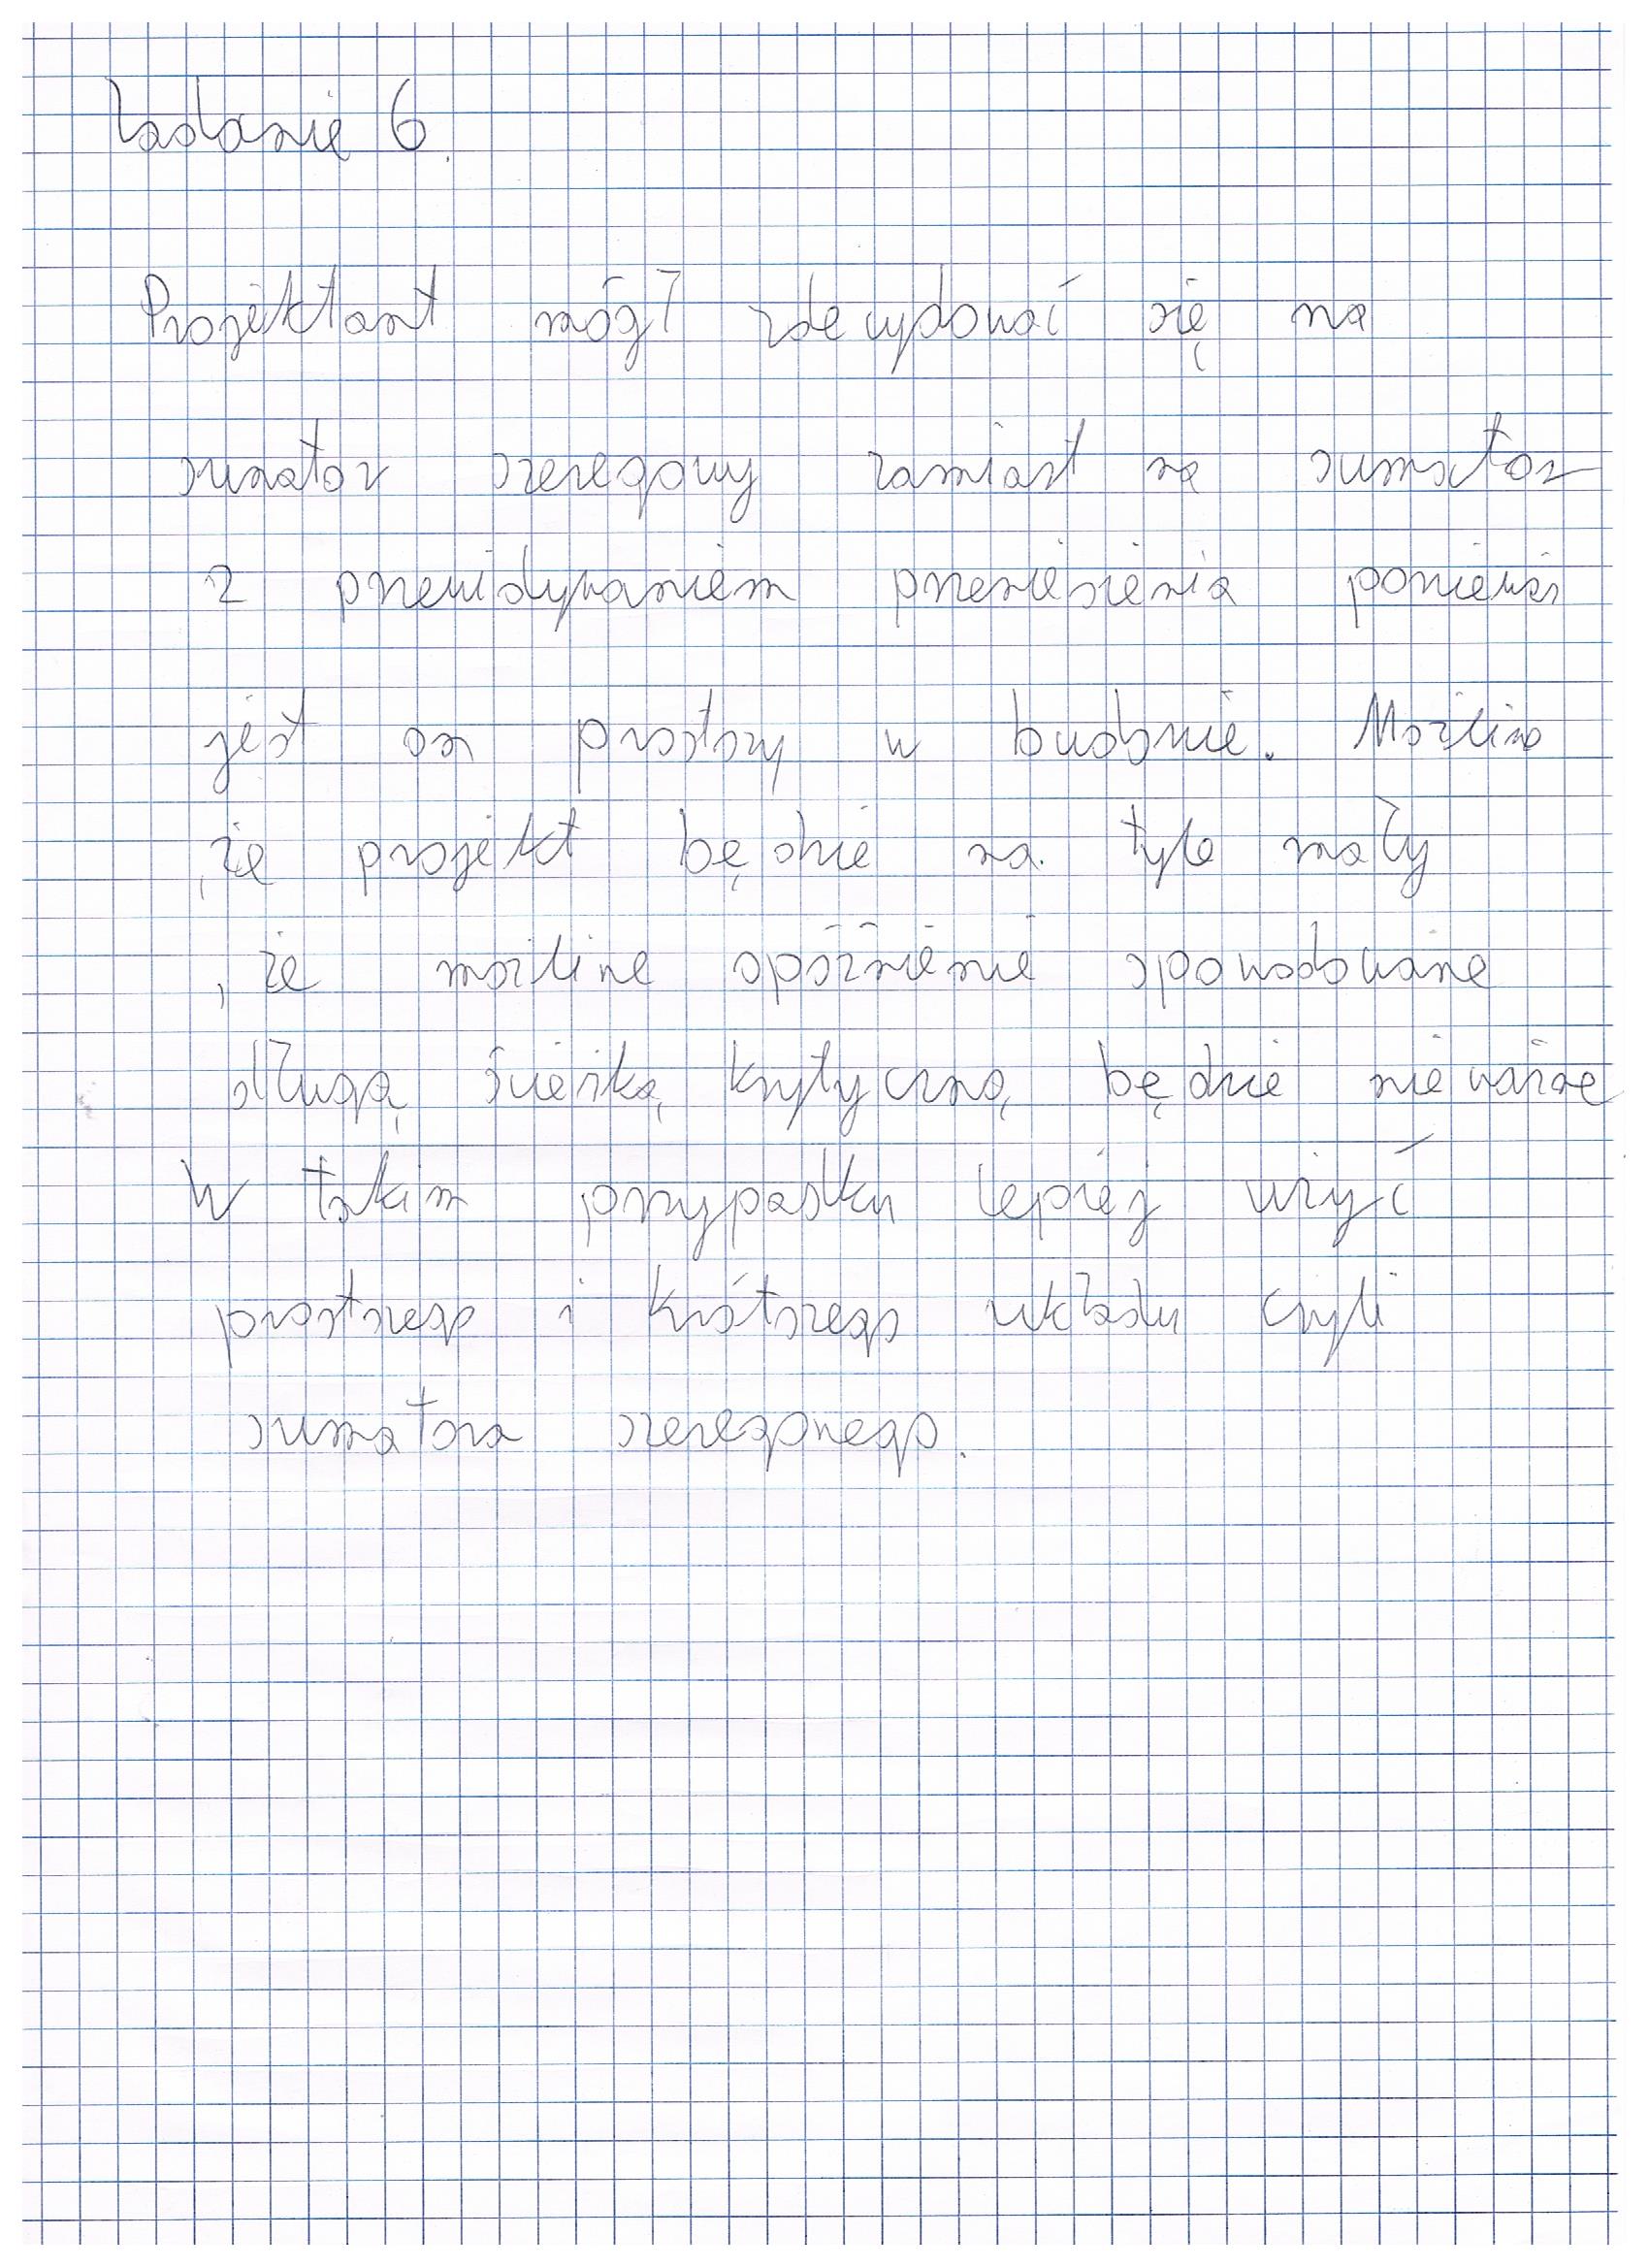 Zadanie 6.
Projektant mógł zdecydować się na
sumator szeregowy zamiast na sumator
z przewidywaniem przeniesienia ponieważ
jest on prostszy w budowie. Możliwe
, że projekt będzie na tyle mały
, że możliwe opóźnienie spowodowane
długą ścieżką krytyczną będzie nie ważne
W takim przypadku lepiej użyć
prostszego i krótszego układu czyli
sumatora szeregowego.